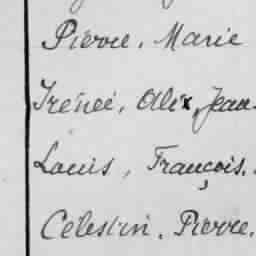 Pierre, Marie
Irénée, Alix, Jean-
Louis, François.
Célestin, Pierre.